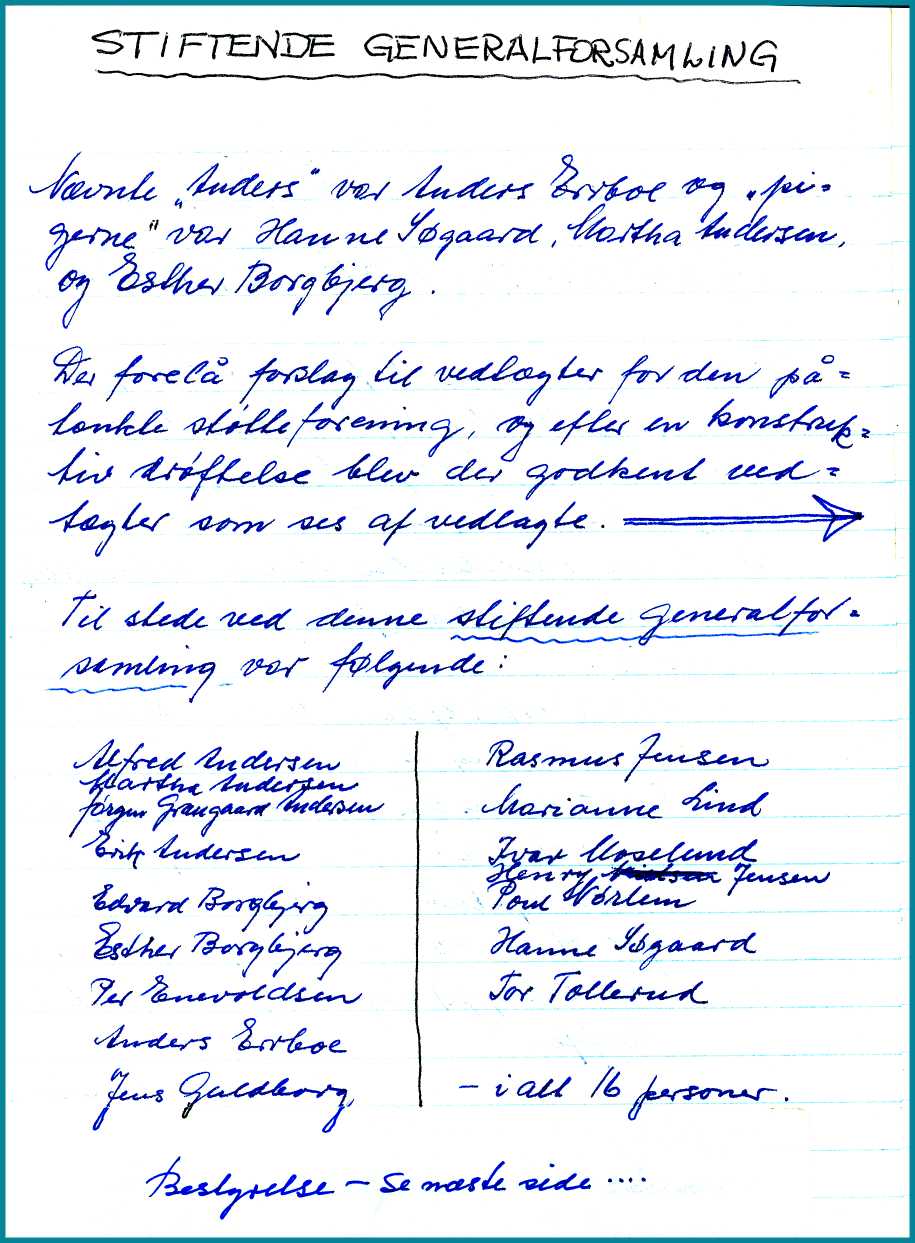 STIFTENDE GENERALFORSAMLING
Nævnte „Anders" var Anders Errboe og „pi-
gerne" var Hanne Søgaard, Martha Andersen,
og Esther Borgbjerg.
Der forelå forslag til vedtægter for den på-
tænkte støtteforening, og efter en konstruk-
tiv drøftelse blev der godkent ved-
tægter som ses af vedlagte.
Til stede ved denne stiftende generalfor-
samling var følgende:
Alfred Andersen
Martha Andersen
Jørgen Graugaard Andersen
Erik Andersen
Edvard Borgbjerg
Esther Borgbjerg
Per Enevoldsen
Anders Errboe
Jens Guldborg
Rasmus Jensen
Marianne Lind
Ivar Moselund
Henry Jensen
Poul Nørlem
Hanne Søgaard
Tor Tollerud
- i alt 16 personer.
Bestyrelse - Se næste side ....